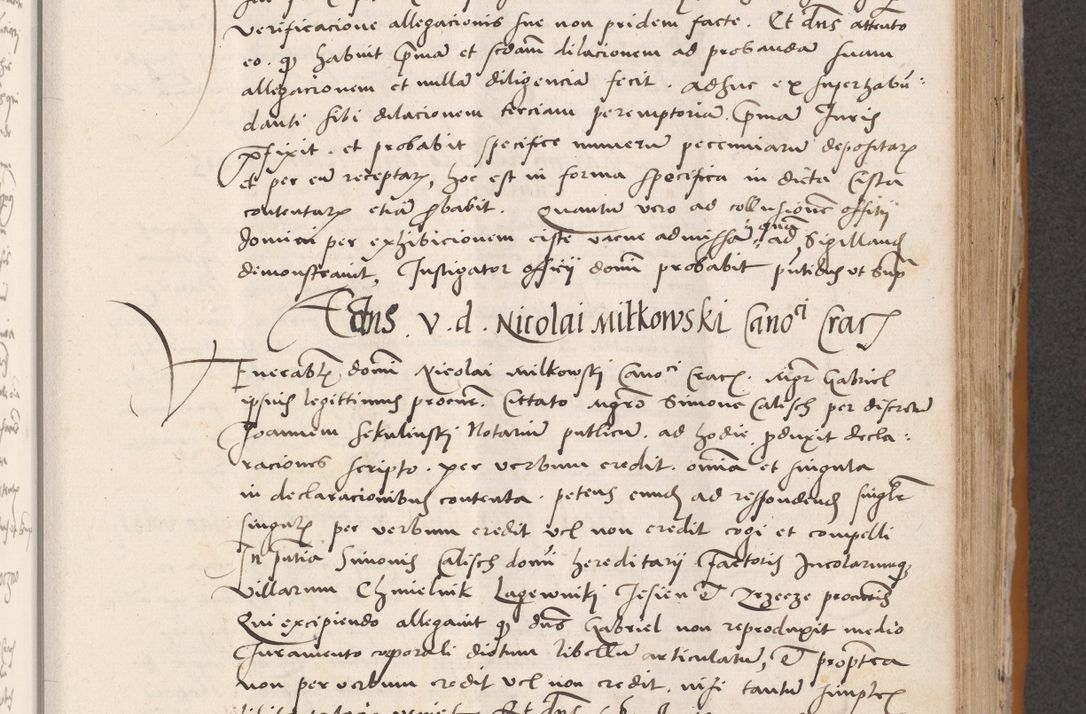 verificacione allegacionis sue non pridem facte. Et dns attento
eo. q habuit pma et scdam dilacionem ad probanda suam
allegacionem et nulla diligencia fecit. adhuc ex superhabu:
danti sibi dilacionem terciam peremptoria pma Juris
pfixit. et probabit specifice numeru pecuniaru depositar
et per eu receptar, hoc est in forma specifica in dicta Cista
contentar etia pbabit. Quantu vero ad collusione officij
domini per exhibicionem ciste vacue admissa ad Sigilland
demonstravit, Instigator officij domi probabit putibus ut Sup
Acta dns. v. d. Nicolai Miłkowski Canoci Crac
Venerablis domi Nicolai Milkowskj Canoci Crac. Mgr Gabriel
ipsius legittimus procur. Cittato Mgro Simone Calisch per discretu
Joannem Sekulinskj Notariu publicu. ad hodie pduxit decla:
raciones scripto. per verbum credit. omia et singula
in declaracionibus contenta. petens eund ad respondend singlr
singulis per verbum credit vel non credit cogi et compelli
In putia Simonis Calisch domi hereditarij Factoris Incolarumq
villarum Chmielnik Lagewnikj Jesien et Rzecze procuris
Qui excipiendo allegavit q dns Gabriel non reproduxit medio
Juramento corporali dictum libellu articulatu, et proptea
non per verbum credit vel non credit. nisi tantu simplex